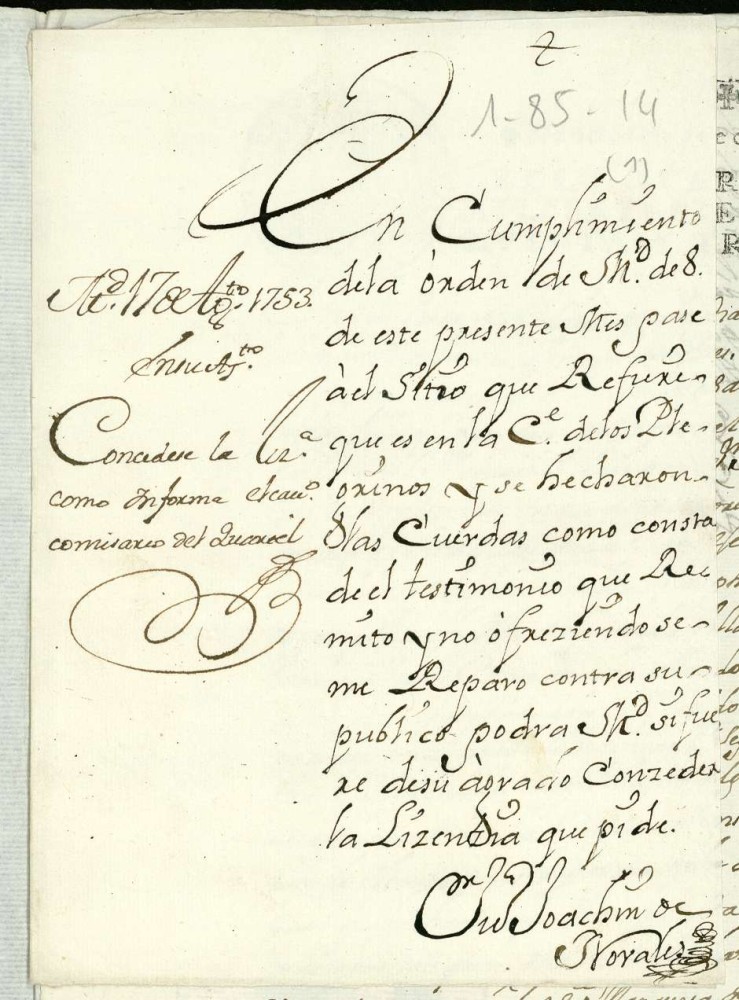 1-85-14
(1)
En Cumplimiento
dela òrden de M.d de 8.
de este presente Mes pase
à el Sitio que Refiere
que es en la C.e delos Pele-
orinos y se hecharon
las Cuerdas como consta
de el testimonio que Re-
mito y no òfreziendose-
me Reparo contra su
publico podra M.d si fue
re desu àgrado Conzeder
la Lizenzia que pide.
Joachin de
Morales
M.d 17 de Ag.to 1753.
En su Ay.to
Concedese la liz.a
como Informa el cav.o
comisario del Quartel